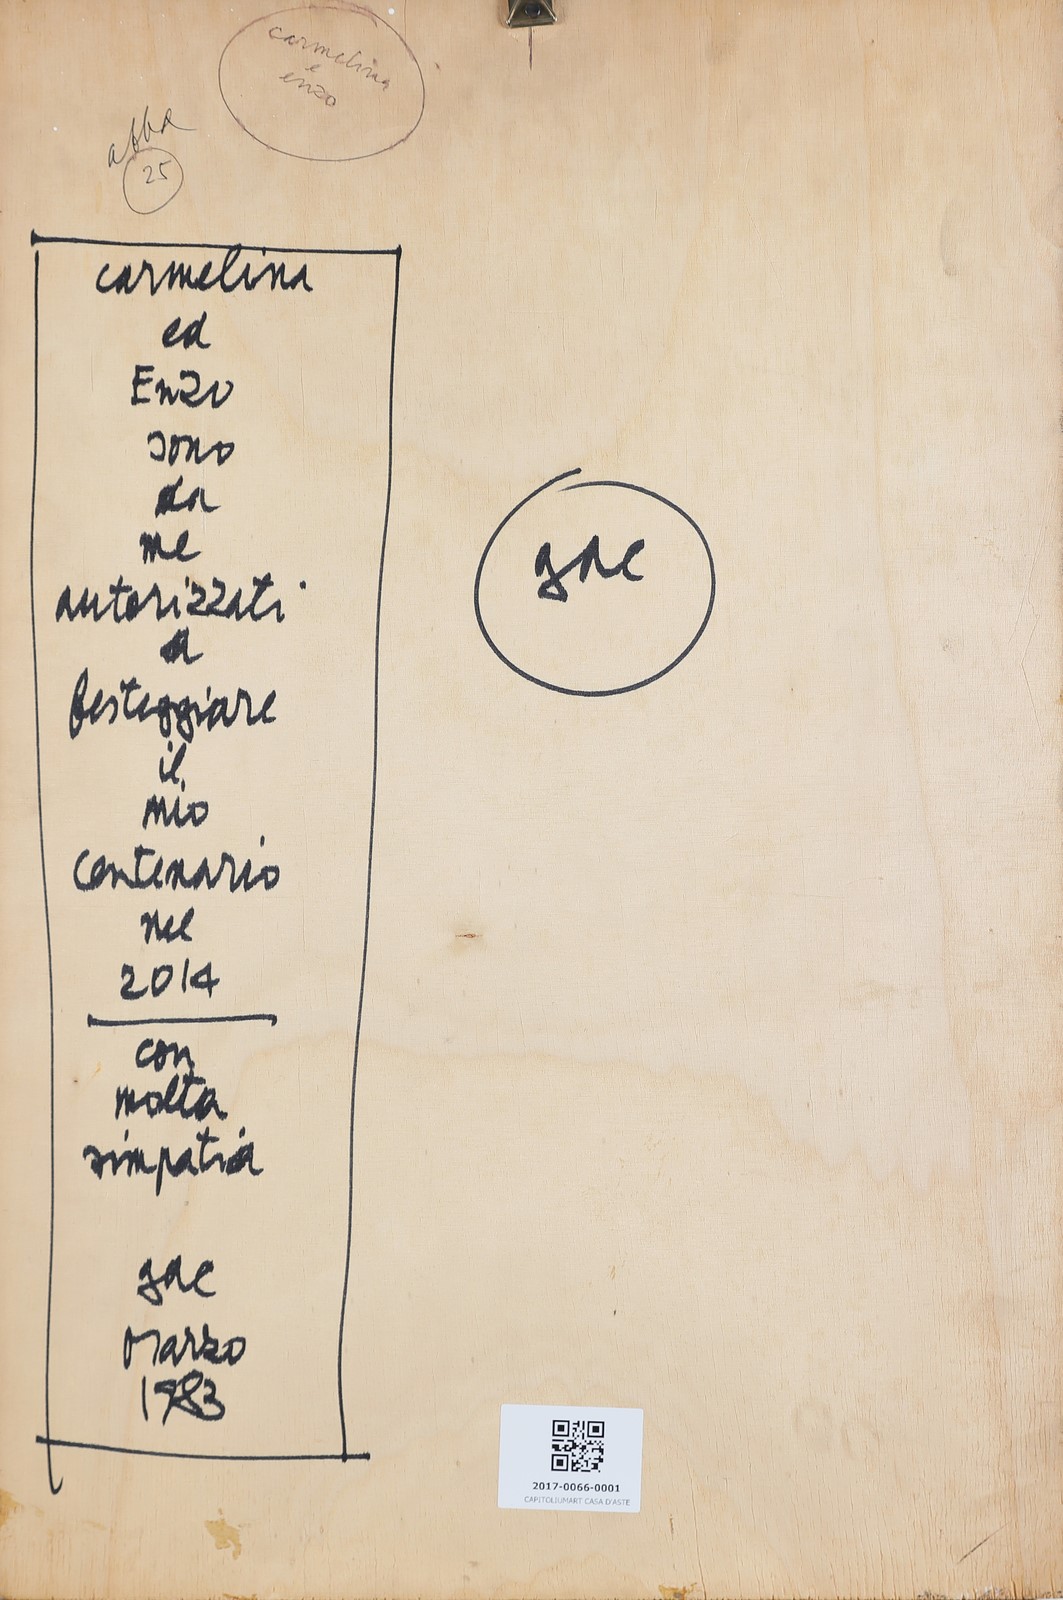 carmelina
e
enzo
abba
25
carmelina
ed
Enzo
sono
da
me
autorizzati
a
festeggiare
il
mio
centenario
nel
2014
con
molta
simpatia
gae
Marzo
1983
gae
2017-0066-0001
CAPITOLIUMART CASA D'ASTE